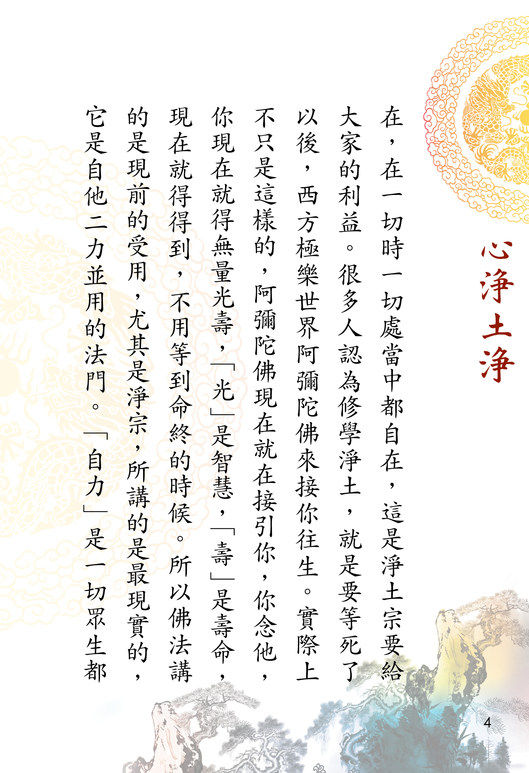 心淨土淨
在，在一切時一切處當中都自在，這是淨土宗要給
大家的利益。很多人認為修學淨土，就是要等死了
以後，西方極樂世界阿彌陀佛來接你往生。實際上
不只是這樣的，阿彌陀佛現在就在接引你，你念他，
你現在就得無量光壽，「光」是智慧，「壽」是壽命，
現在就得得到，不用等到命終的時候。所以佛法講
的是現前的受用，尤其是淨宗，所講的是最現實的，
它是自他二力並用的法門。「自力」是一切眾生都
4